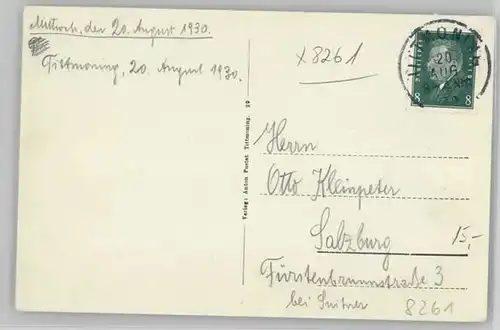 Mittwoch, den 20. August 1930.
Tittmoning, 20. August 1930.
x8261
TITTMONING
20.
AUG
8 8
Verlag: Anton Pustet, Tittmoning. 29
Herrn
Otto Kleinpeter
Salzburg
15,-
Fürstenbrunnstraße 3
bei
8261